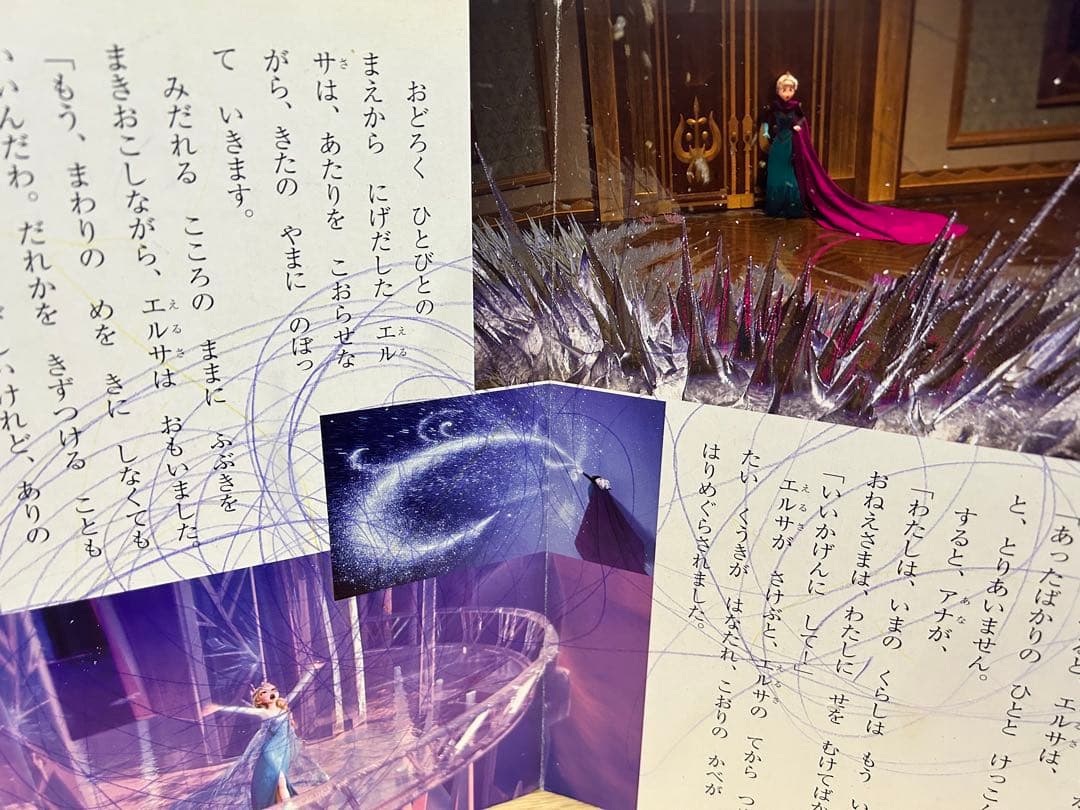 エルサは、
「あったばかりの　ひとと　けっこ
と、とりあいません。
すると、アナが、
「わたしは、いまの　くらしは　もう　い
おねえさまは、わたしに　せを　むけてばか
「いいかげんに　してー」
エルサが　さけぶと、エルサの　てから　つ
たい　くうきが　はなたれ、こおりの　かべが
はりめぐらされました。
おどろく　ひとびとの
まえから　にげだした　エル
サは、あたりを　こおらせな
がら、きたの　やまに　のぼっ
て　いきます。
みだれる　こころの　ままに　ふぶきを
まきおこしながら、エルサは　おもいました。
「もう、まわりの　めを　きに　しなくても
いいんだわ。だれかを　きずつける　ことも
いけれど、ありの